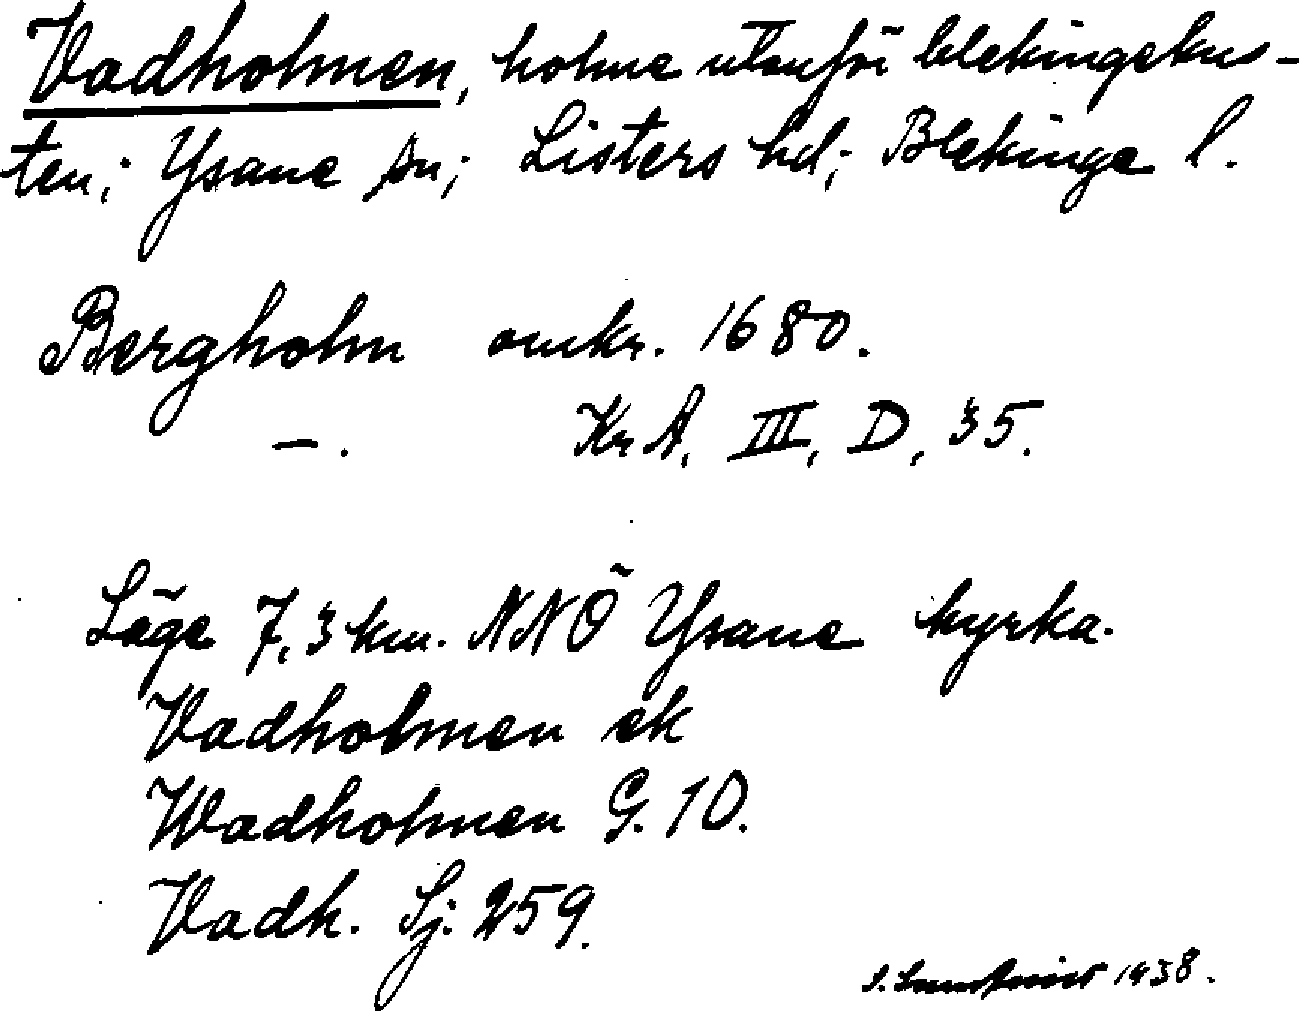 Vadholmen, holme utanför blekingekus-
ten; Ysane sn; Listers hd; Blekinge l.
Bergholm omkr. 1680.
—. KrA, III, D, 35.
Läge 7,3 km. NNÖ Ysane kyrka.
Vadholmen ek
Wadholmen G. 10.
Vadh. Sj. 259.
1938.